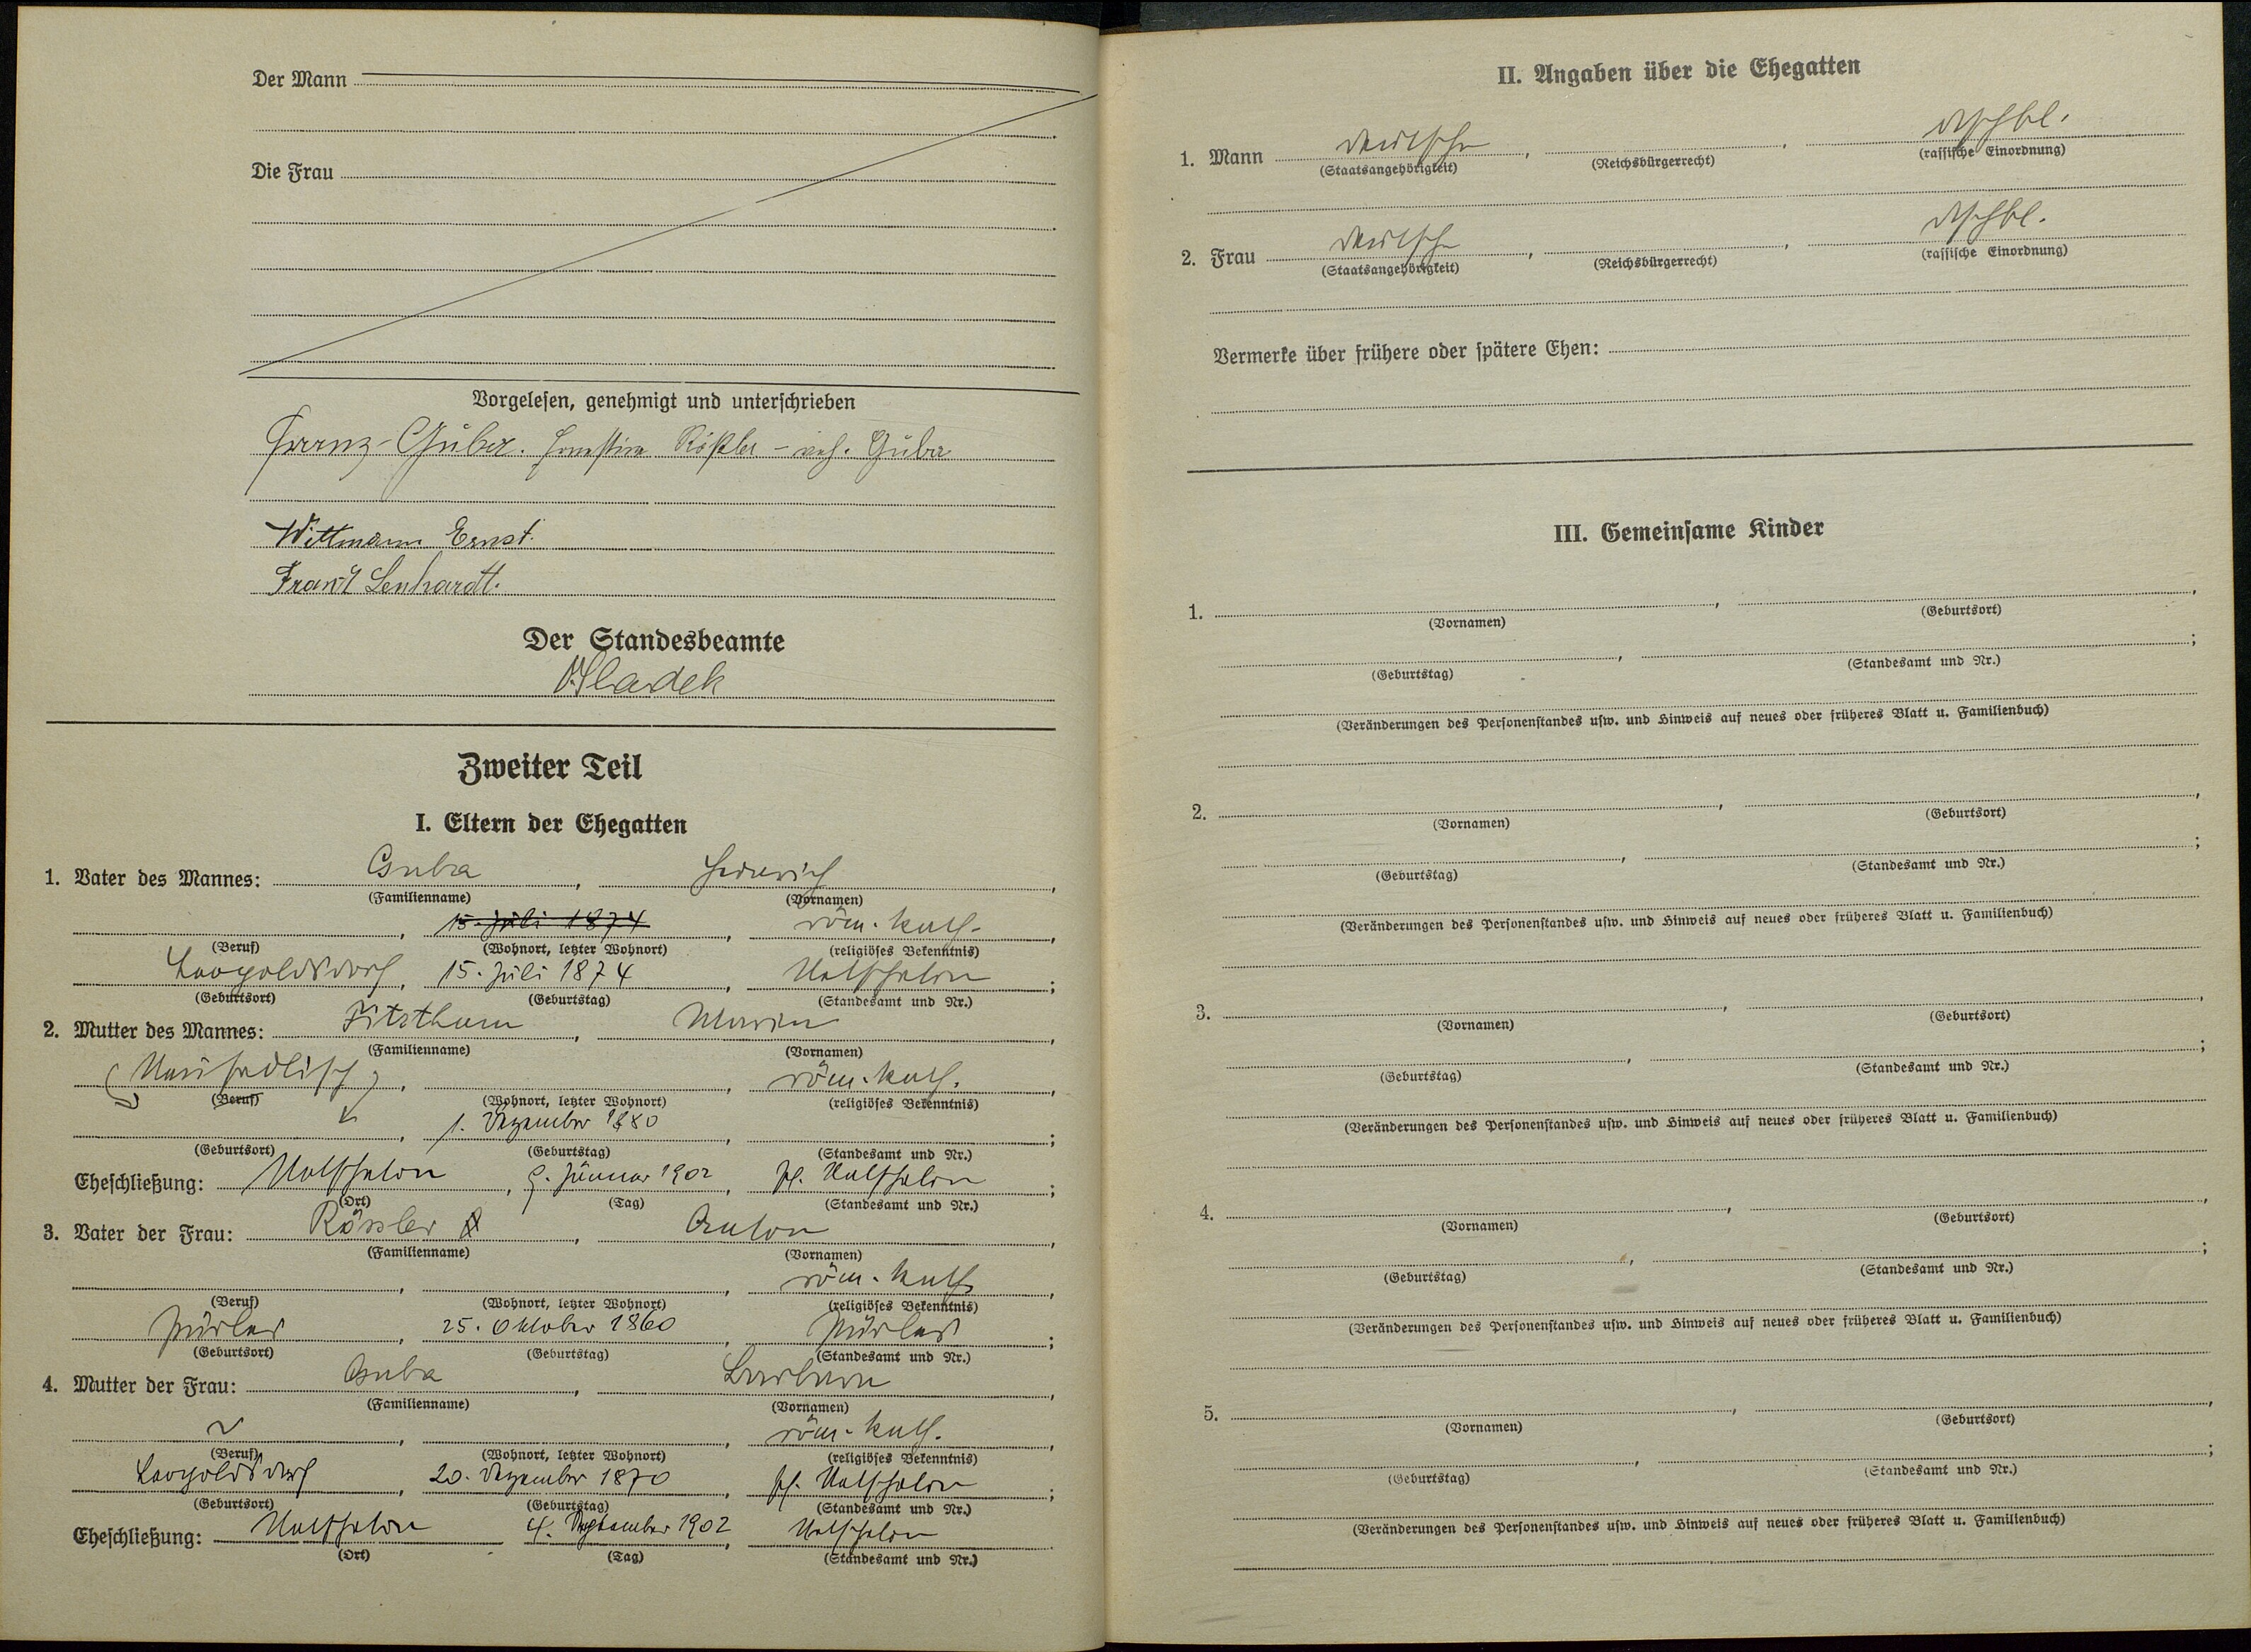 Der Mann
Die Frau
Vorgelesen, genehmigt und unterschrieben
Franz Guba. Ernestine Rößler - verh. Guba
Wittmann Ernst.
Franz Lenhardt.
Der Standesbeamte
Sladek
Zweiter Teil
I. Eltern der Ehegatten
1. Vater des Mannes: Guba, Heinrich,
(Familienname) (Vornamen)
15. Juli 1874, röm. kath.,
(Beruf) (Wohnort, letzter Wohnort) (religiöses Bekenntnis)
Leopoldsdorf, 15. Juli 1874,
(Geburtsort) (Geburtstag) (Standesamt und Nr.)
2. Mutter des Mannes: , Maria,
(Familienname) (Vornamen)
röm. kath.,
(Beruf) (Wohnort, letzter Wohnort) (religiöses Bekenntnis)
1. Dezember 1880,
(Geburtsort) (Geburtstag) (Standesamt und Nr.)
Eheschließung: Januar 1902,
(Ort) (Tag) (Standesamt und Nr.)
3. Vater der Frau: Rössler, Anton,
(Familienname) (Vornamen)
röm. kath,
(Beruf) (Wohnort, letzter Wohnort) (religiöses Bekenntnis)
25. Oktober 1860,
(Geburtsort) (Geburtstag) (Standesamt und Nr.)
4. Mutter der Frau: Guba, Barbara,
(Familienname) (Vornamen)
röm. kath.,
(Beruf) (Wohnort, letzter Wohnort) (religiöses Bekenntnis)
Leopoldsdorf, 20. Dezember 1870,
(Geburtsort) (Geburtstag) (Standesamt und Nr.)
Eheschließung: 4. 1902,
(Ort) (Tag) (Standesamt und Nr.)
II. Angaben über die Ehegatten
1. Mann deutsche, , dtschbl.
(Staatsangehörigkeit) (Reichsbürgerrecht) (rassische Einordnung)
2. Frau deutsche, , dtschbl.
(Staatsangehörigkeit) (Reichsbürgerrecht) (rassische Einordnung)
Vermerke über frühere oder spätere Ehen:
III. Gemeinsame Kinder
1.
(Vornamen) (Geburtsort)
(Geburtstag) (Standesamt und Nr.)
(Veränderungen des Personenstandes usw. und Hinweis auf neues oder früheres Blatt u. Familienbuch)
2.
(Vornamen) (Geburtsort)
(Geburtstag) (Standesamt und Nr.)
(Veränderungen des Personenstandes usw. und Hinweis auf neues oder früheres Blatt u. Familienbuch)
3.
(Vornamen) (Geburtsort)
(Geburtstag) (Standesamt und Nr.)
(Veränderungen des Personenstandes usw. und Hinweis auf neues oder früheres Blatt u. Familienbuch)
4.
(Vornamen) (Geburtsort)
(Geburtstag) (Standesamt und Nr.)
(Veränderungen des Personenstandes usw. und Hinweis auf neues oder früheres Blatt u. Familienbuch)
5.
(Vornamen) (Geburtsort)
(Geburtstag) (Standesamt und Nr.)
(Veränderungen des Personenstandes usw. und Hinweis auf neues oder früheres Blatt u. Familienbuch)